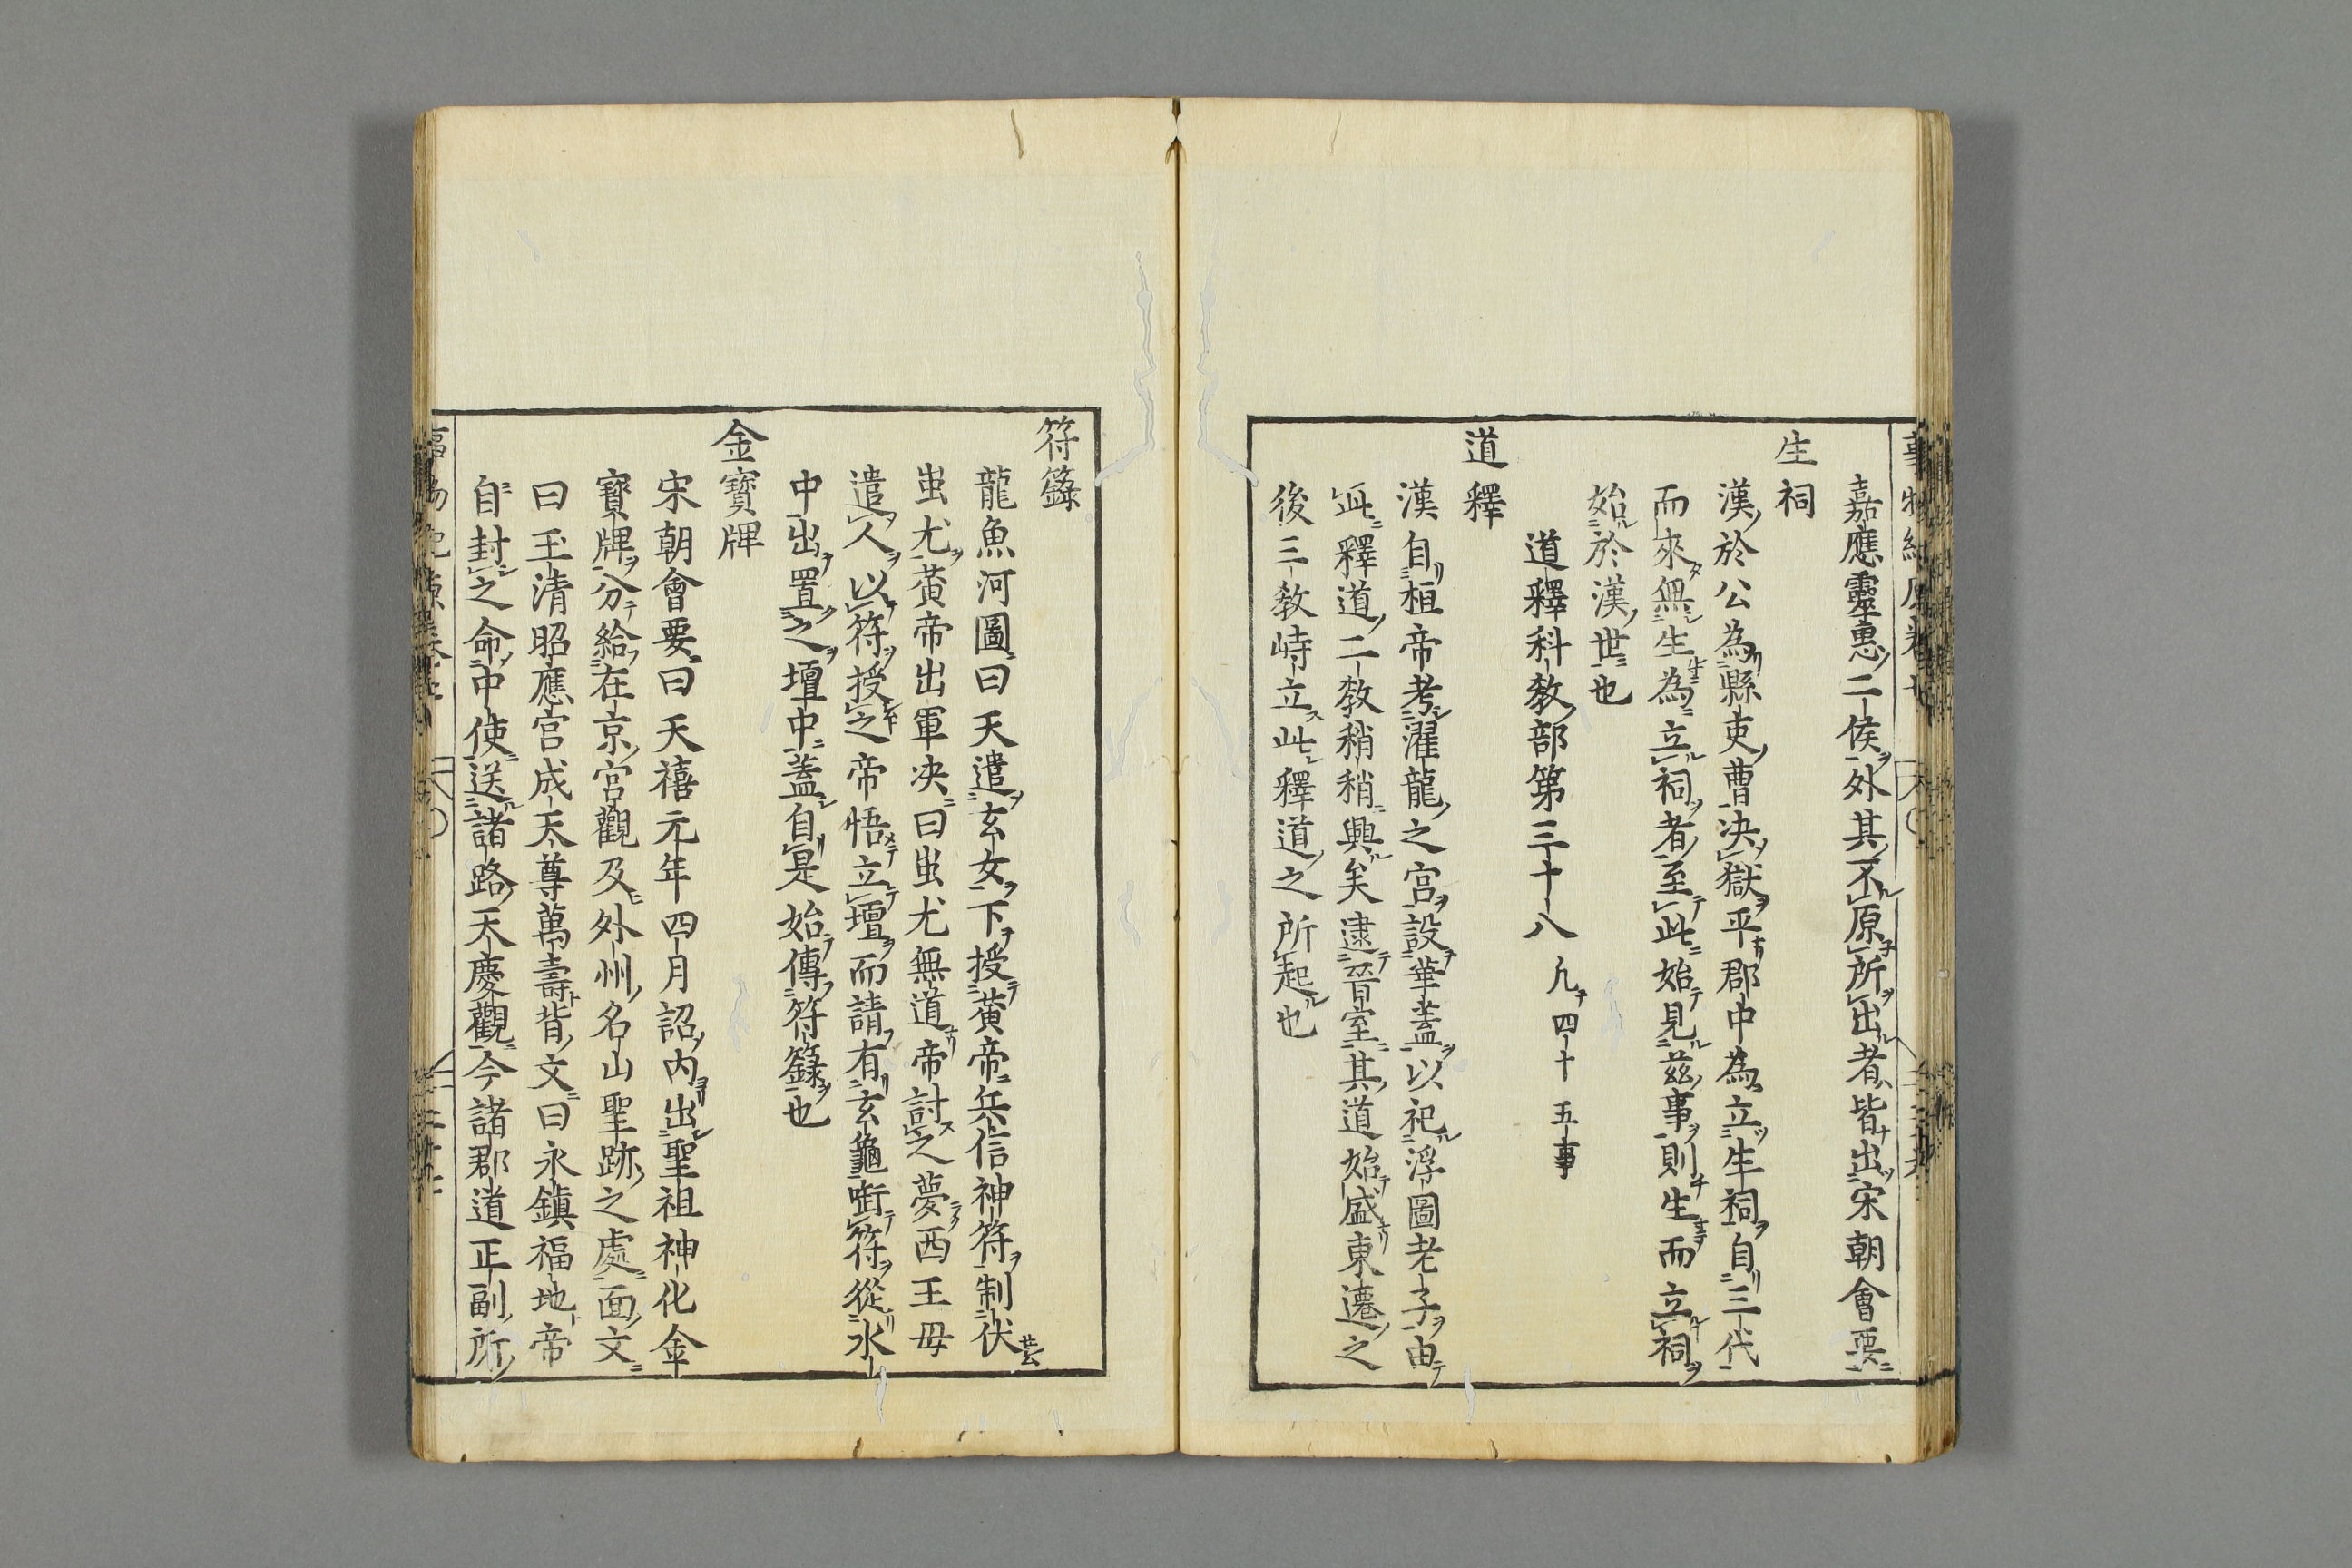 嘉應靈惠二侯外其不原所出者皆出宋朝會要
生祠
漢於公為縣吏曹决獄平郡中為立生祠自三代
而來無生為立祠者至此始見茲事則生而立祠
始於漢世也
道釋科教部第三十八 凡四十五事
道釋
漢自桓帝考濯龍之宮設華蓋以祀浮圖老子由
此釋道二教稍稍興矣逮晉室其道始盛東遷之
後三教峙立此釋道之所起也
符籙
龍魚河圖曰天遣玄女下授黃帝兵信神符制伏蚩
蚩尤黃帝出軍决曰蚩尤無道帝討之夢西王母
遣人以符授之帝悟立壇而請有玄龜啣符從水
中出置之壇中蓋自是始傳符籙也
金寶牌
宋朝會要曰天禧元年四月詔內出聖祖神化金
寶牌分給在京宮觀及外州名山聖跡之處面文
曰玉清昭應宮成天尊萬壽背文曰永鎮福地帝
自封之命中使送諸路天慶觀今諸郡道正副所